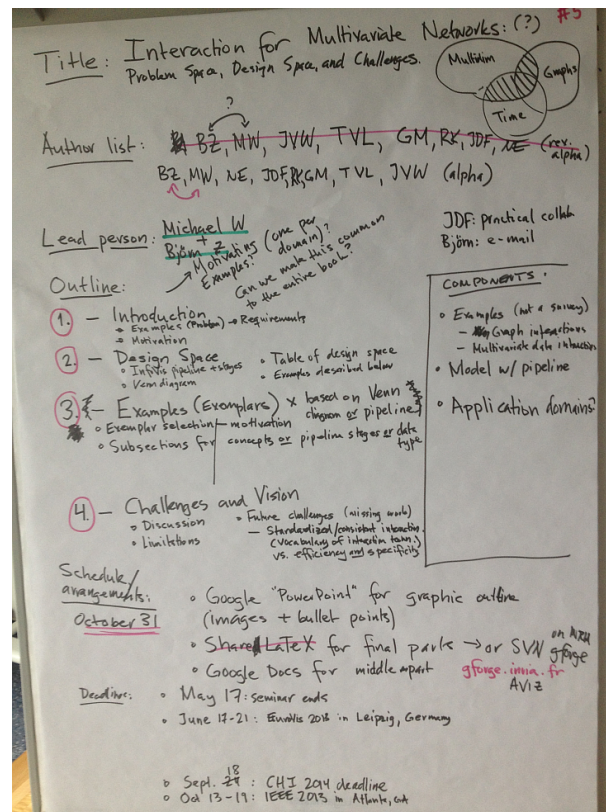 #5
Title: Interaction for Multivariate Networks: (?)
Problem Space, Design Space, and Challenges.
Multidim
Graphs
Time
?
Author list: BZ, MW, JVW, TVL, GM, RK, JDF, NE (rev. alpha)
BZ, MW, NE, JDF, RK, GM, TVL, JVW (alpha)
Lead person: Michael W
+
Björn Z
JDF: practical collab
Björn: e-mail
Motivating (one per
Examples? domain)?
Can we make this common
to the entire book?
Outline:
1. — Introduction
Examples (Problem) → Requirements
Motivation
2. — Design Space
InfoVis pipeline + stages
Venn diagram
Table of design space
Examples described below
3. — Examples (Exemplars) × based on Venn
diagram or pipeline
Exemplar selection — motivation
Subsections for concepts or pipeline stages or data
type
4. — Challenges and Vision
Discussion
Limitations
Future challenges (missing work)
— Standardized/consistent interaction
(Vocabulary of interaction tawn.)
vs. efficiency and specificity
COMPONENTS:
Examples (not a survey)
— Graph interactions
— Multivariate data interaction
Model w/ pipeline
Application domains?
Schedule/
arrangements:
October 31
Google "PowerPoint" for graphic outline
(images + bullet points)
ShareLaTeX for final parts → or SVN on
gforge
Google Docs for middle part
gforge.inria.fr
AVIZ
Deadlines:
May 17: seminar ends
June 17-21: EuroVis 2013 in Leipzig, Germany
Sept. 18 : CHI 2014 deadline
Oct 13-19: IEEE 2013 in Atlanta, GA